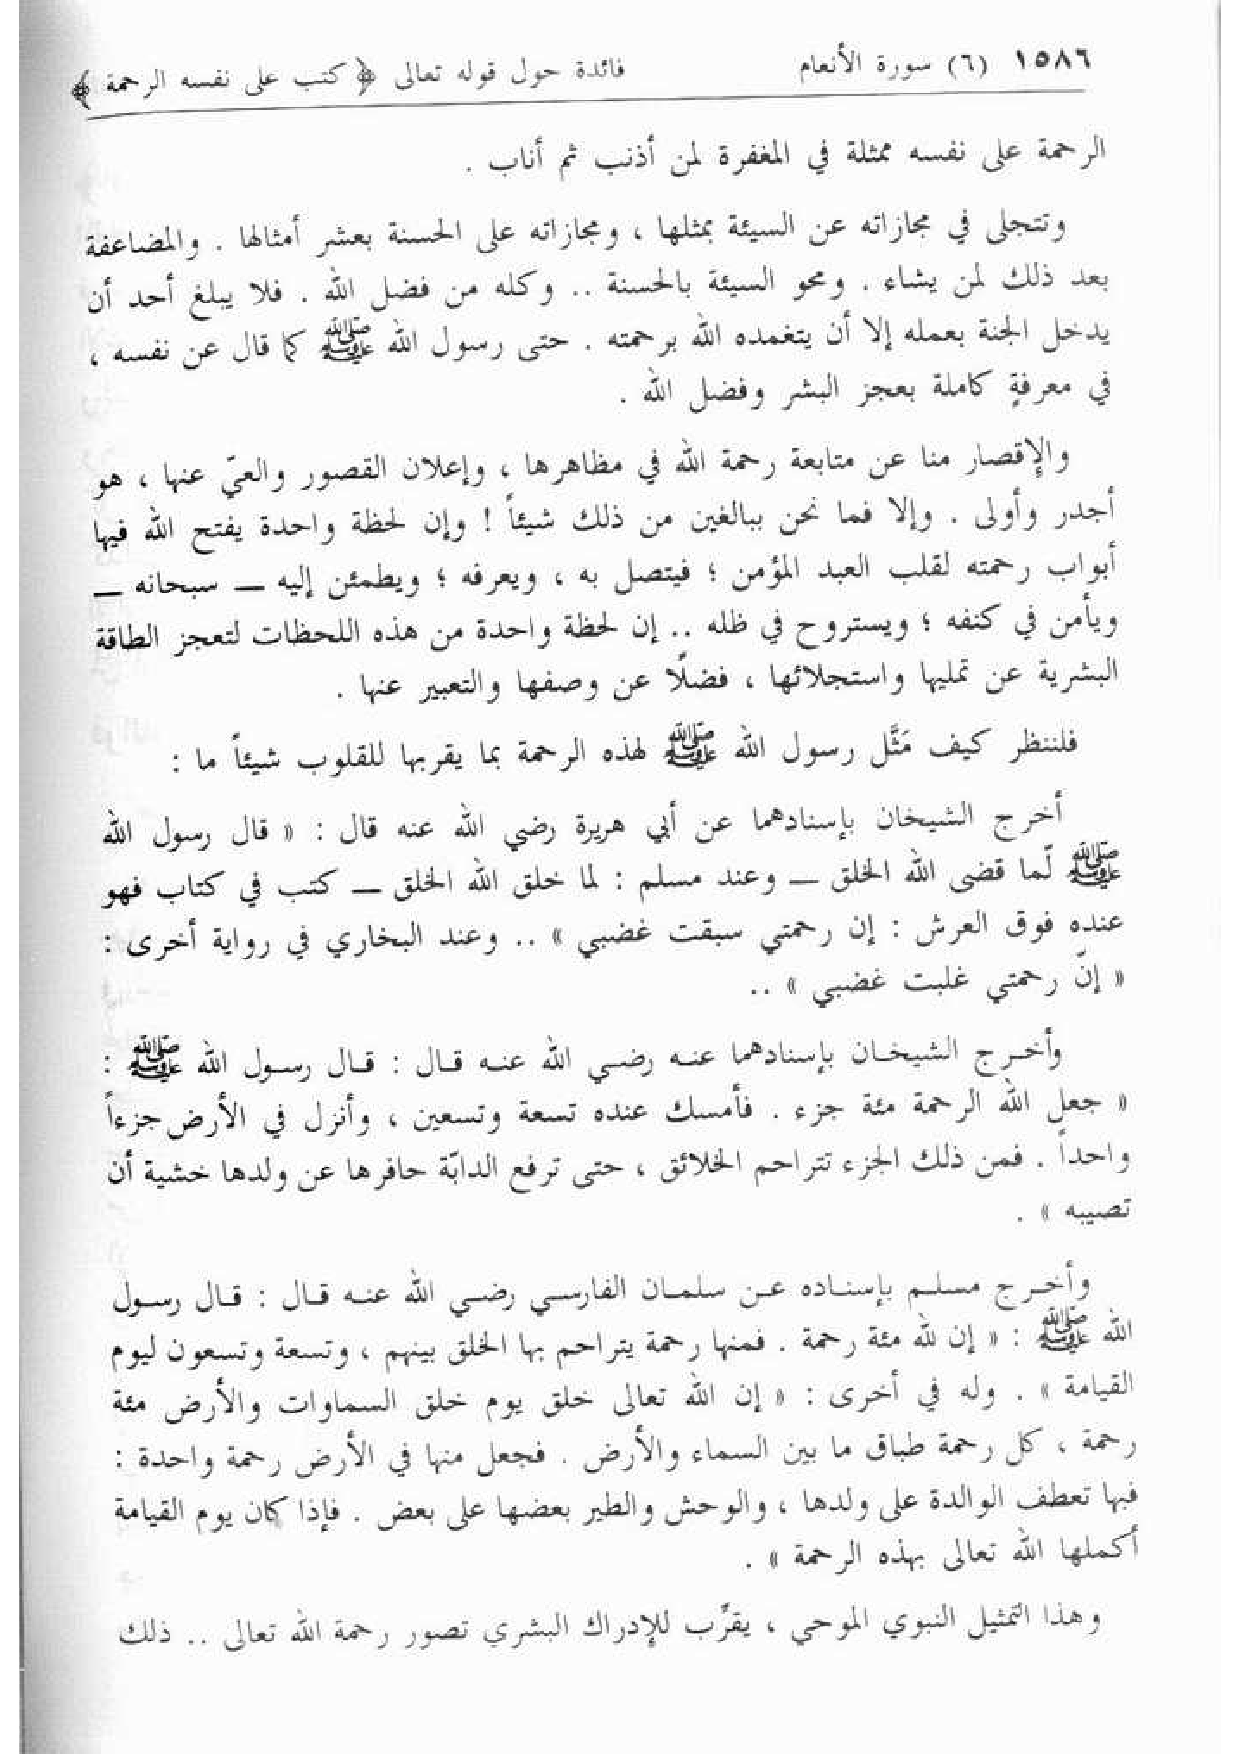 ١٥٨٦ (٦) سورة الأنعام فائدة حول قوله تعالى ﴿ كتب على نفسه الرحمة ﴾
الرحمة على نفسه ممثلة في المغفرة لمن أذنب ثم أناب .
وتتجلى في مجازاته عن السيئة بمثلها ، ومجازاته على الحسنة بعشر أمثالها . والمضاعفة
بعد ذلك لمن يشاء . ومحو السيئة بالحسنة .. وكله من فضل الله . فلا يبلغ أحد أن
يدخل الجنة بعمله إلا أن يتغمده الله برحمته . حتى رسول الله ﷺ كما قال عن نفسه ،
في معرفةٍ كاملة بعجز البشر وفضل الله .
والإقصار منا عن متابعة رحمة الله في مظاهرها ، وإعلان القصور والعيّ عنها ، هو
أجدر وأولى . وإلا فما نحن ببالغين من ذلك شيئاً ! وإن لحظة واحدة يفتح الله فيها
أبواب رحمته لقلب العبد المؤمن ؛ فيتصل به ، ويعرفه ؛ ويطمئن إليه ـ سبحانه ـ
ويأمن في كنفه ؛ ويستروح في ظله .. إن لحظة واحدة من هذه اللحظات لتعجز الطاقة
البشرية عن تمليها واستجلائها ، فضلًا عن وصفها والتعبير عنها .
فلننظر كيف مَثَّل رسول الله ﷺ لهذه الرحمة بما يقربها للقلوب شيئاً ما :
أخرج الشيخان بإسنادهما عن أبي هريرة رضي الله عنه قال : « قال رسول الله
ﷺ لّما قضى الله الخلق ـ وعند مسلم : لما خلق الله الخلق ـ كتب في كتاب فهو
عنده فوق العرش : إن رحمتي سبقت غضبي » .. وعند البخاري في رواية أخرى :
« إنّ رحمتي غلبت غضبي » ..
وأخرج الشيخان بإسنادهما عنه رضي الله عنه قال : قال رسول الله ﷺ :
« جعل الله الرحمة مئة جزء . فأمسك عنده تسعة وتسعين ، وأنزل في الأرض جزءاً
واحداً . فمن ذلك الجزء تتراحم الخلائق ، حتى ترفع الدابّة حافرها عن ولدها خشية أن
تصيبه » .
وأخرج مسلم بإسناده عن سلمان الفارسي رضي الله عنه قال : قال رسول
الله ﷺ : « إن لله مئة رحمة . فمنها رحمة يتراحم بها الخلق بينهم ، وتسعة وتسعون ليوم
القيامة » . وله في أخرى : « إن الله تعالى خلق يوم خلق السماوات والأرض مئة
رحمة ، كل رحمة طباق ما بين السماء والأرض . فجعل منها في الأرض رحمة واحدة :
فبها تعطف الوالدة على ولدها ، والوحش والطير بعضها على بعض . فإذا كان يوم القيامة
أكملها الله تعالى بهذه الرحمة » .
وهذا التمثيل النبوي الموحي ، يقرِّب للإدراك البشري تصور رحمة الله تعالى .. ذلك